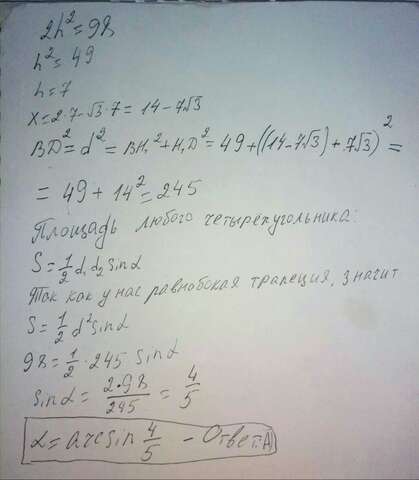 2h²=98
h²=49
h=7
x=2·7-√3·7=14-7√3
BD²=d²=BH₁²+H₁D²=49+((14-7√3)+7√3)²=
=49+14²=245
Площадь любого четырёхугольника:
S=½d₁d₂sinα
Так как у нас равнобокая трапеция, значит
S=½d²sinα
98=½·245 sinα
sinα=2·98/245=4/5
α=arcsin 4/5 - Ответ:А